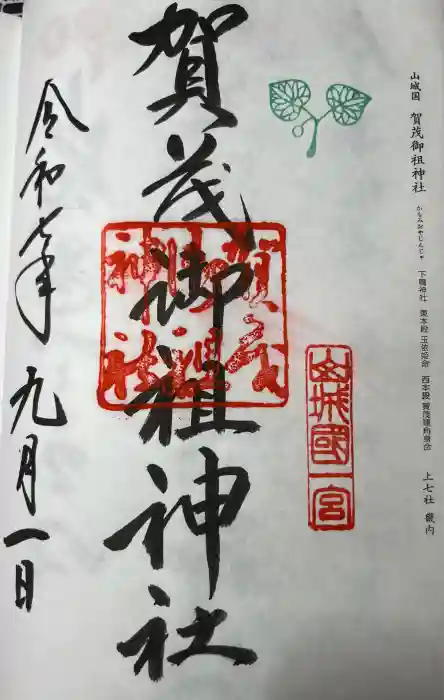 山城国 賀茂御祖神社 かもみおやじんじゃ 下鴨神社 東本殿 玉依姫命 西本殿 賀茂建角身命 上七社 畿内
山城國一宮
賀茂御祖神社
賀茂御祖神社
令和七年 九月一日